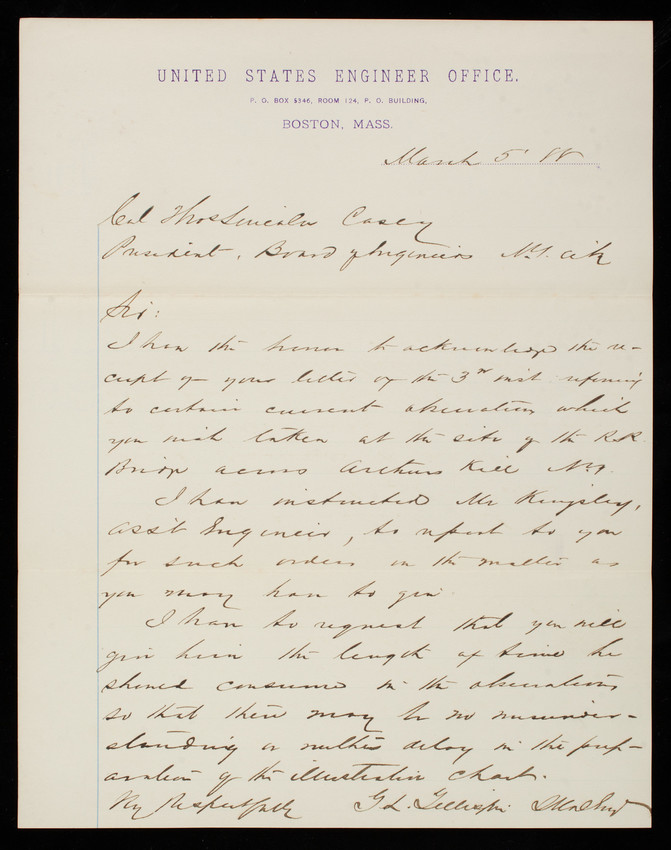 UNITED STATES ENGINEER OFFICE.
P. O. BOX 5346, ROOM 124, P. O. BUILDING,
BOSTON, MASS.
March 5' 88
Col Thos Lincoln Casey
President, Board of Engineers N.Y. City
Sir:
I have the honor to acknowledge the re-
ceipt of your letter of the 3rd inst. referring
to certain current observations which
you wish taken at the site of the R.R.
Bridge across Arthur Kill N.Y.
I have instructed Mr Kingsley,
Ass't Engineer, to report to you
for such orders in the matter as
you may have to give.
I have to request that you will
give him the length of time he
should consume in the observations
so that there may be no misunder-
standing or further delay in the prep-
aration of the illustrative chart.
Very Respectfully G. L. Gillespie